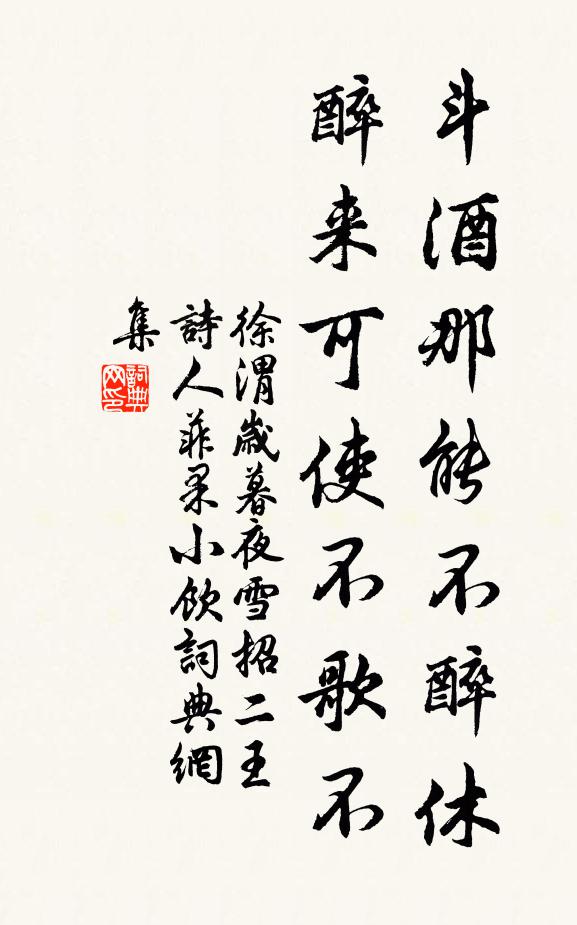 斗酒那能不醉休
醉来可使不歌不
徐渭歲暮夜雪招二王
詩人菲果小飲詞典網
集
詞典
网印